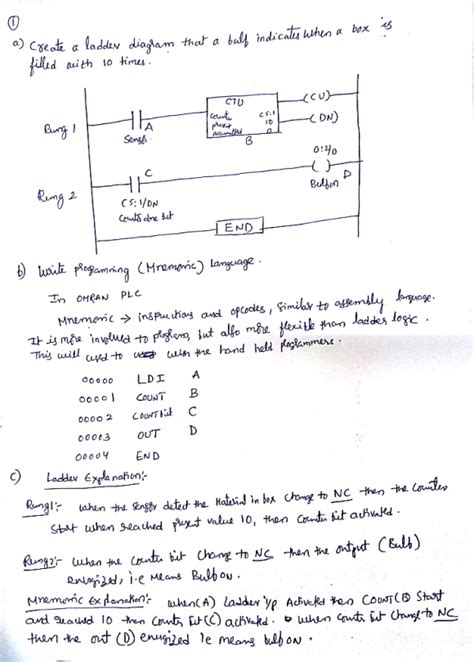 ①
a) Create a ladder diagram that a bulb indicates when a box is
filled with 10 times.
CTU
(CU)
Rung 1
A
Sensor
Counter C5:1
preset 10
accumulated 0
(DN)
B
0:4/0
C
( )
D
Rung 2
C5:1/DN
Bulbon
Counts done bit
END
b) Write programming (Mnemonic) language.
In OMRAN PLC
Mnemonic → instructions and opcodes, similar to assembly language.
It is more involved to program, but also more flexible than ladder logic.
This will used to with the hand held programmers.
00000 LDI A
00001 COUNT B
00002 COUNTbit C
00003 OUT D
00004 END
c) Ladder Explanation:-
Rung1:- when the sensor detect the Material in box change to NC then the counter
start when reached preset value 10, then Counter bit activated.
Rung2:- when the counter bit change to NC then the output (Bulb)
energized, i.e Means Bulb on.
Mnemonic Explanation:- when (A) Ladder i/p Activated then COUNT(B) Start
and reached 10 then Counter bit (C) activated. when counts bit change to NC
then the out (D) energized ie means bulb on.